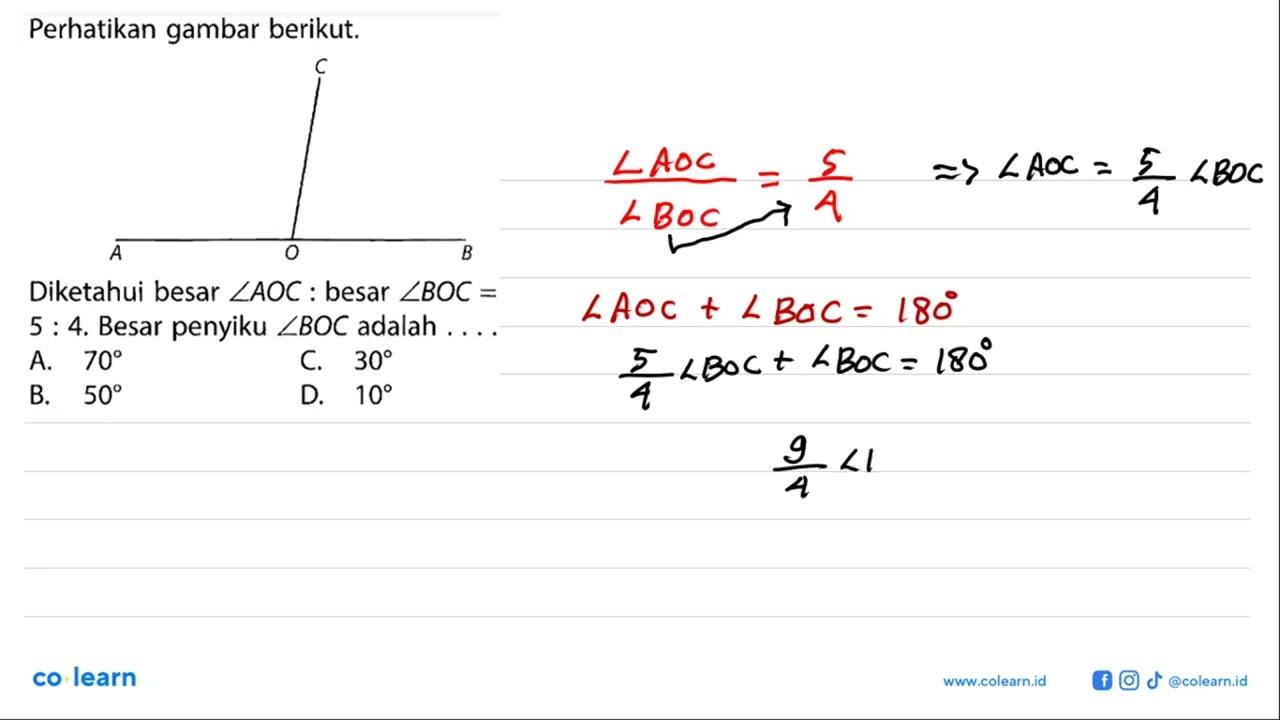 Perhatikan gambar berikut.
C
A O B
Diketahui besar ∠AOC : besar ∠BOC =
5 : 4. Besar penyiku ∠BOC adalah . . . .
A. 70° C. 30°
B. 50° D. 10°
∠AOC / ∠BOC = 5/4 => ∠AOC = 5/4 ∠BOC
∠AOC + ∠BOC = 180°
5/4 ∠BOC + ∠BOC = 180°
9/4 ∠I
co learn
www.colearn.id @colearn.id